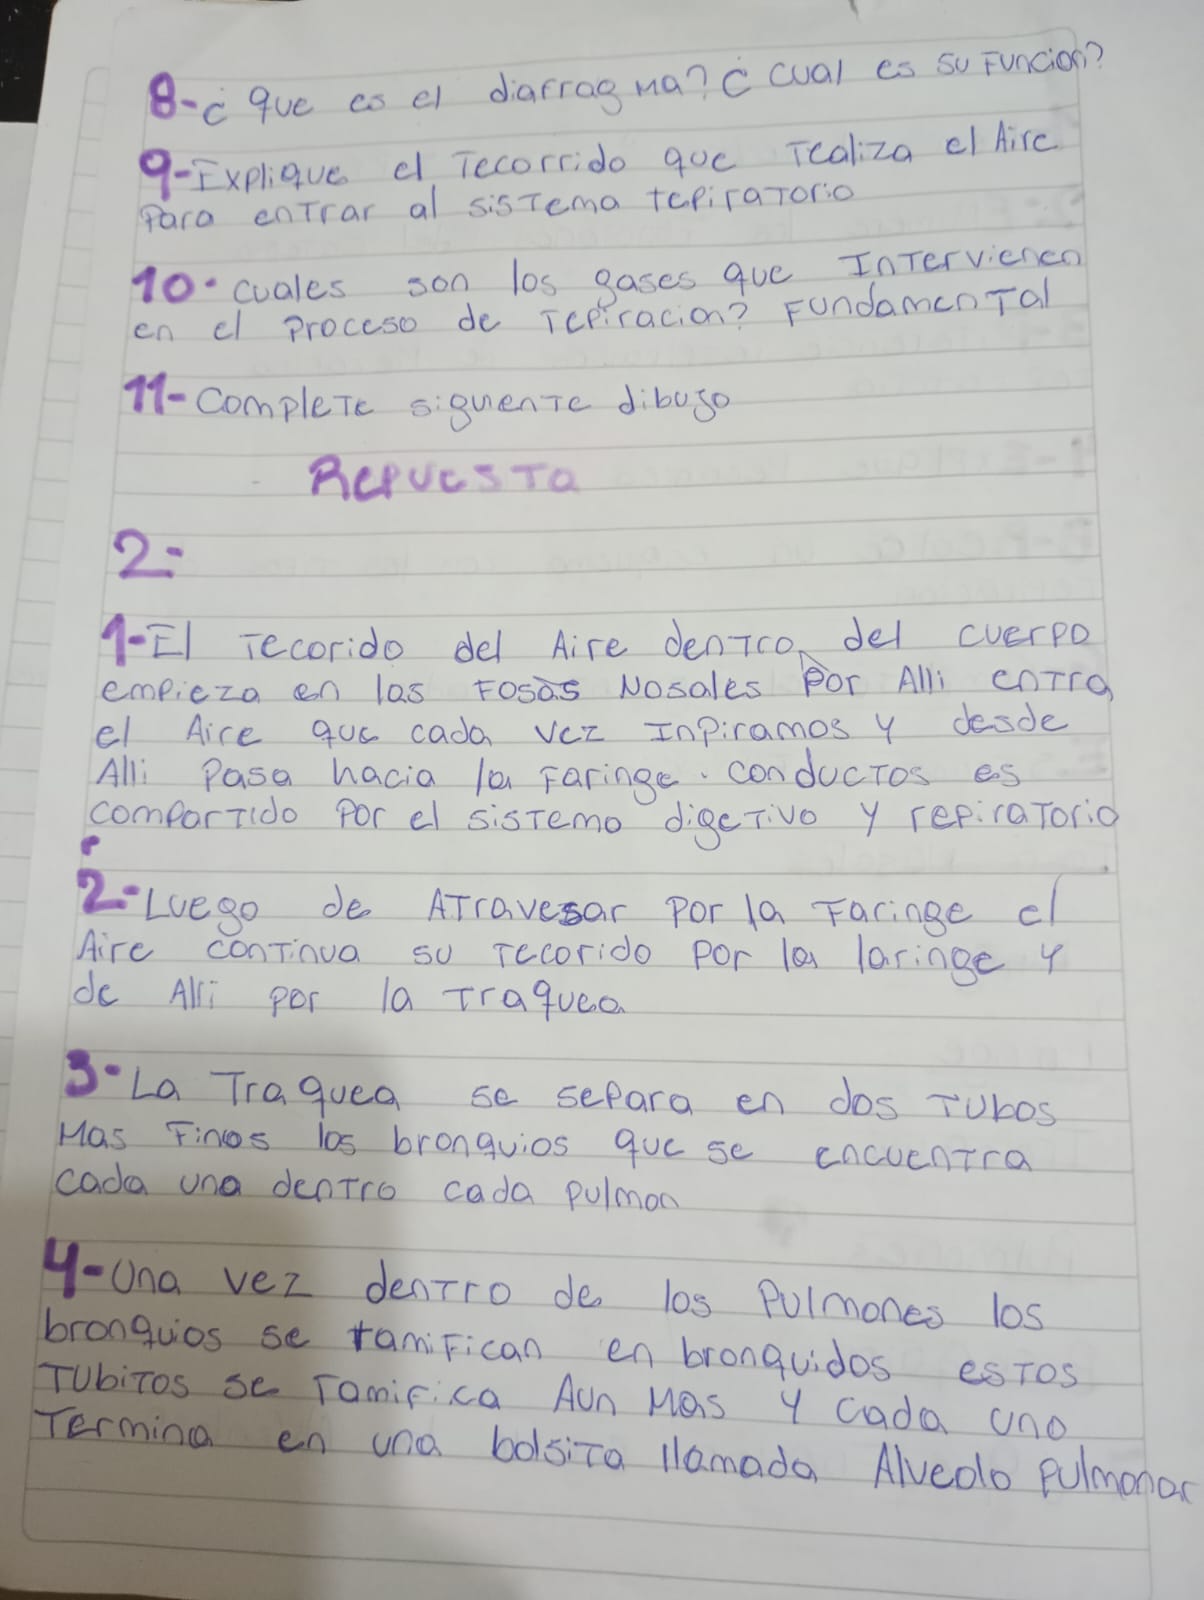 8-¿ que es el diafragma? ¿ cual es su Funcion?
9-Explique el recorrido que realiza el Aire
Para entrar al sistema repiratorio
10. cuales son los gases que Intervienen
en el Proceso de repiracion? Fundamental
11- Complete siguente dibujo
Repuesta
2-
1-El recorido del Aire dentro del cuerpo
empieza en las Fosas Nosales Por Alli entra
el Aire que cada vez Inpiramos y desde
Alli Pasa hacia la Faringe. conductos es
compartido Por el sistemo digetivo y repiratorio
2-Luego de Atravesar Por la Faringe el
Aire continua su recorido Por la laringe y
de Alli por la traquea
3-La Traquea se separa en dos Tubos
Mas Finos los bronquios que se encuentra
cada una dentro cada pulmon
4-Una vez dentro de los Pulmones los
bronquios se ramifican en bronquidos estos
Tubitos se ramifica Aun Mas y cada uno
Termina en una bolsita llamada Alveolo pulmonar